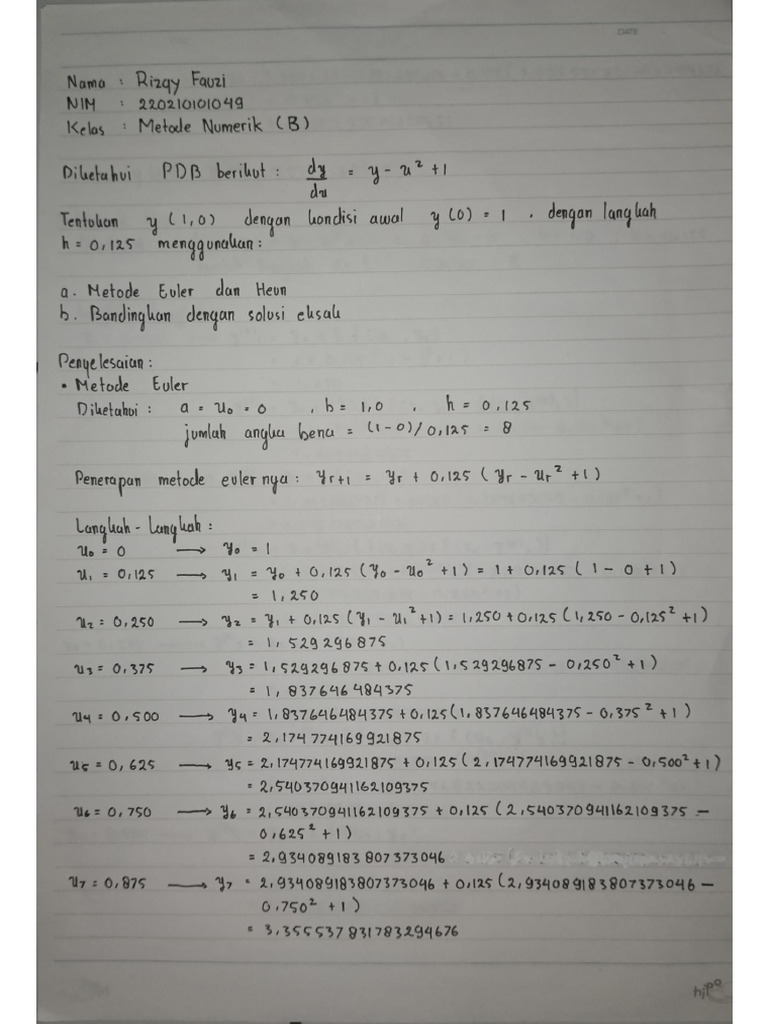 DATE
Nama : Rizqy Fauzi
NIM : 220210101049
Kelas : Metode Numerik (B)
Diketahui PDB berikut : dy/du = y - u² + 1
Tentukan y (1,0) dengan kondisi awal y (0) = 1 . dengan langkah
h = 0,125 menggunakan :
a. Metode Euler dan Heun
b. Bandingkan dengan solusi eksak
Penyelesaian :
• Metode Euler
Diketahui : a = u₀ = 0 , b = 1,0 , h = 0,125
jumlah angka bena = (1-0)/0,125 = 8
Penerapan metode eulernya : yᵣ₊₁ = yᵣ + 0,125 ( yᵣ - uᵣ² + 1)
Langkah - Langkah :
u₀ = 0 → y₀ = 1
u₁ = 0,125 → y₁ = y₀ + 0,125 (y₀ - u₀² + 1) = 1 + 0,125 ( 1 - 0 + 1)
= 1,250
u₂ = 0,250 → y₂ = y₁ + 0,125 (y₁ - u₁² + 1) = 1,250 + 0,125 (1,250 - 0,125² + 1)
= 1,529296875
u₃ = 0,375 → y₃ = 1,529296875 + 0,125 (1,529296875 - 0,250² + 1)
= 1,837646484375
u₄ = 0,500 → y₄ = 1,837646484375 + 0,125 (1,837646484375 - 0,375² + 1)
= 2,174774169921875
u₅ = 0,625 → y₅ = 2,174774169921875 + 0,125 ( 2,174774169921875 - 0,500² + 1)
= 2,540370941162109375
u₆ = 0,750 → y₆ = 2,540370941162109375 + 0,125 ( 2,540370941162109375 -
0,625² + 1)
= 2,934089183807373046
u₇ = 0,875 → y₇ = 2,934089183807373046 + 0,125 (2,934089183807373046 -
0,750² + 1)
= 3,355537831783294676